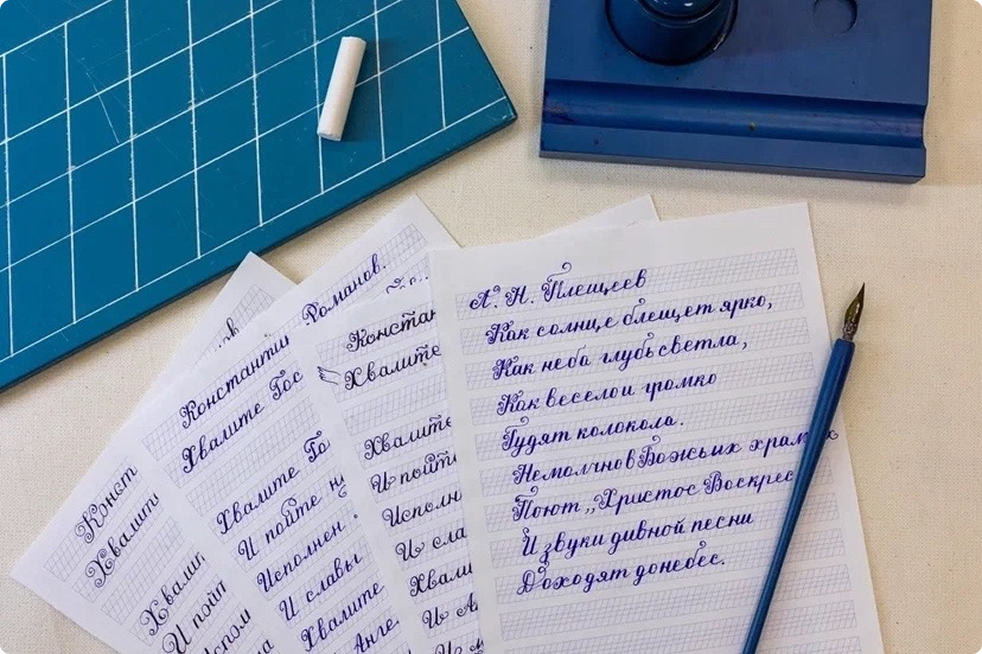 А. Н. Плещеев
Как солнце блещет ярко,
Как неба глубь светла,
Как весело и громко
Гудят колокола.
Немолчно в Божьих храмах
Поют „Христос Воскрес
И звуки дивной песни
Доходят до небес.
Констан
Хвалите
Хвалите
И пойте
Исполн
И сла
Хвали
И Ан
Романов.
Константин
Хвалите Гос
Хвалите Го
И пойте
Исполнен
И славы
Хвалите
Анге
Конст
Хвалит
Хвали
И пойт
Испол